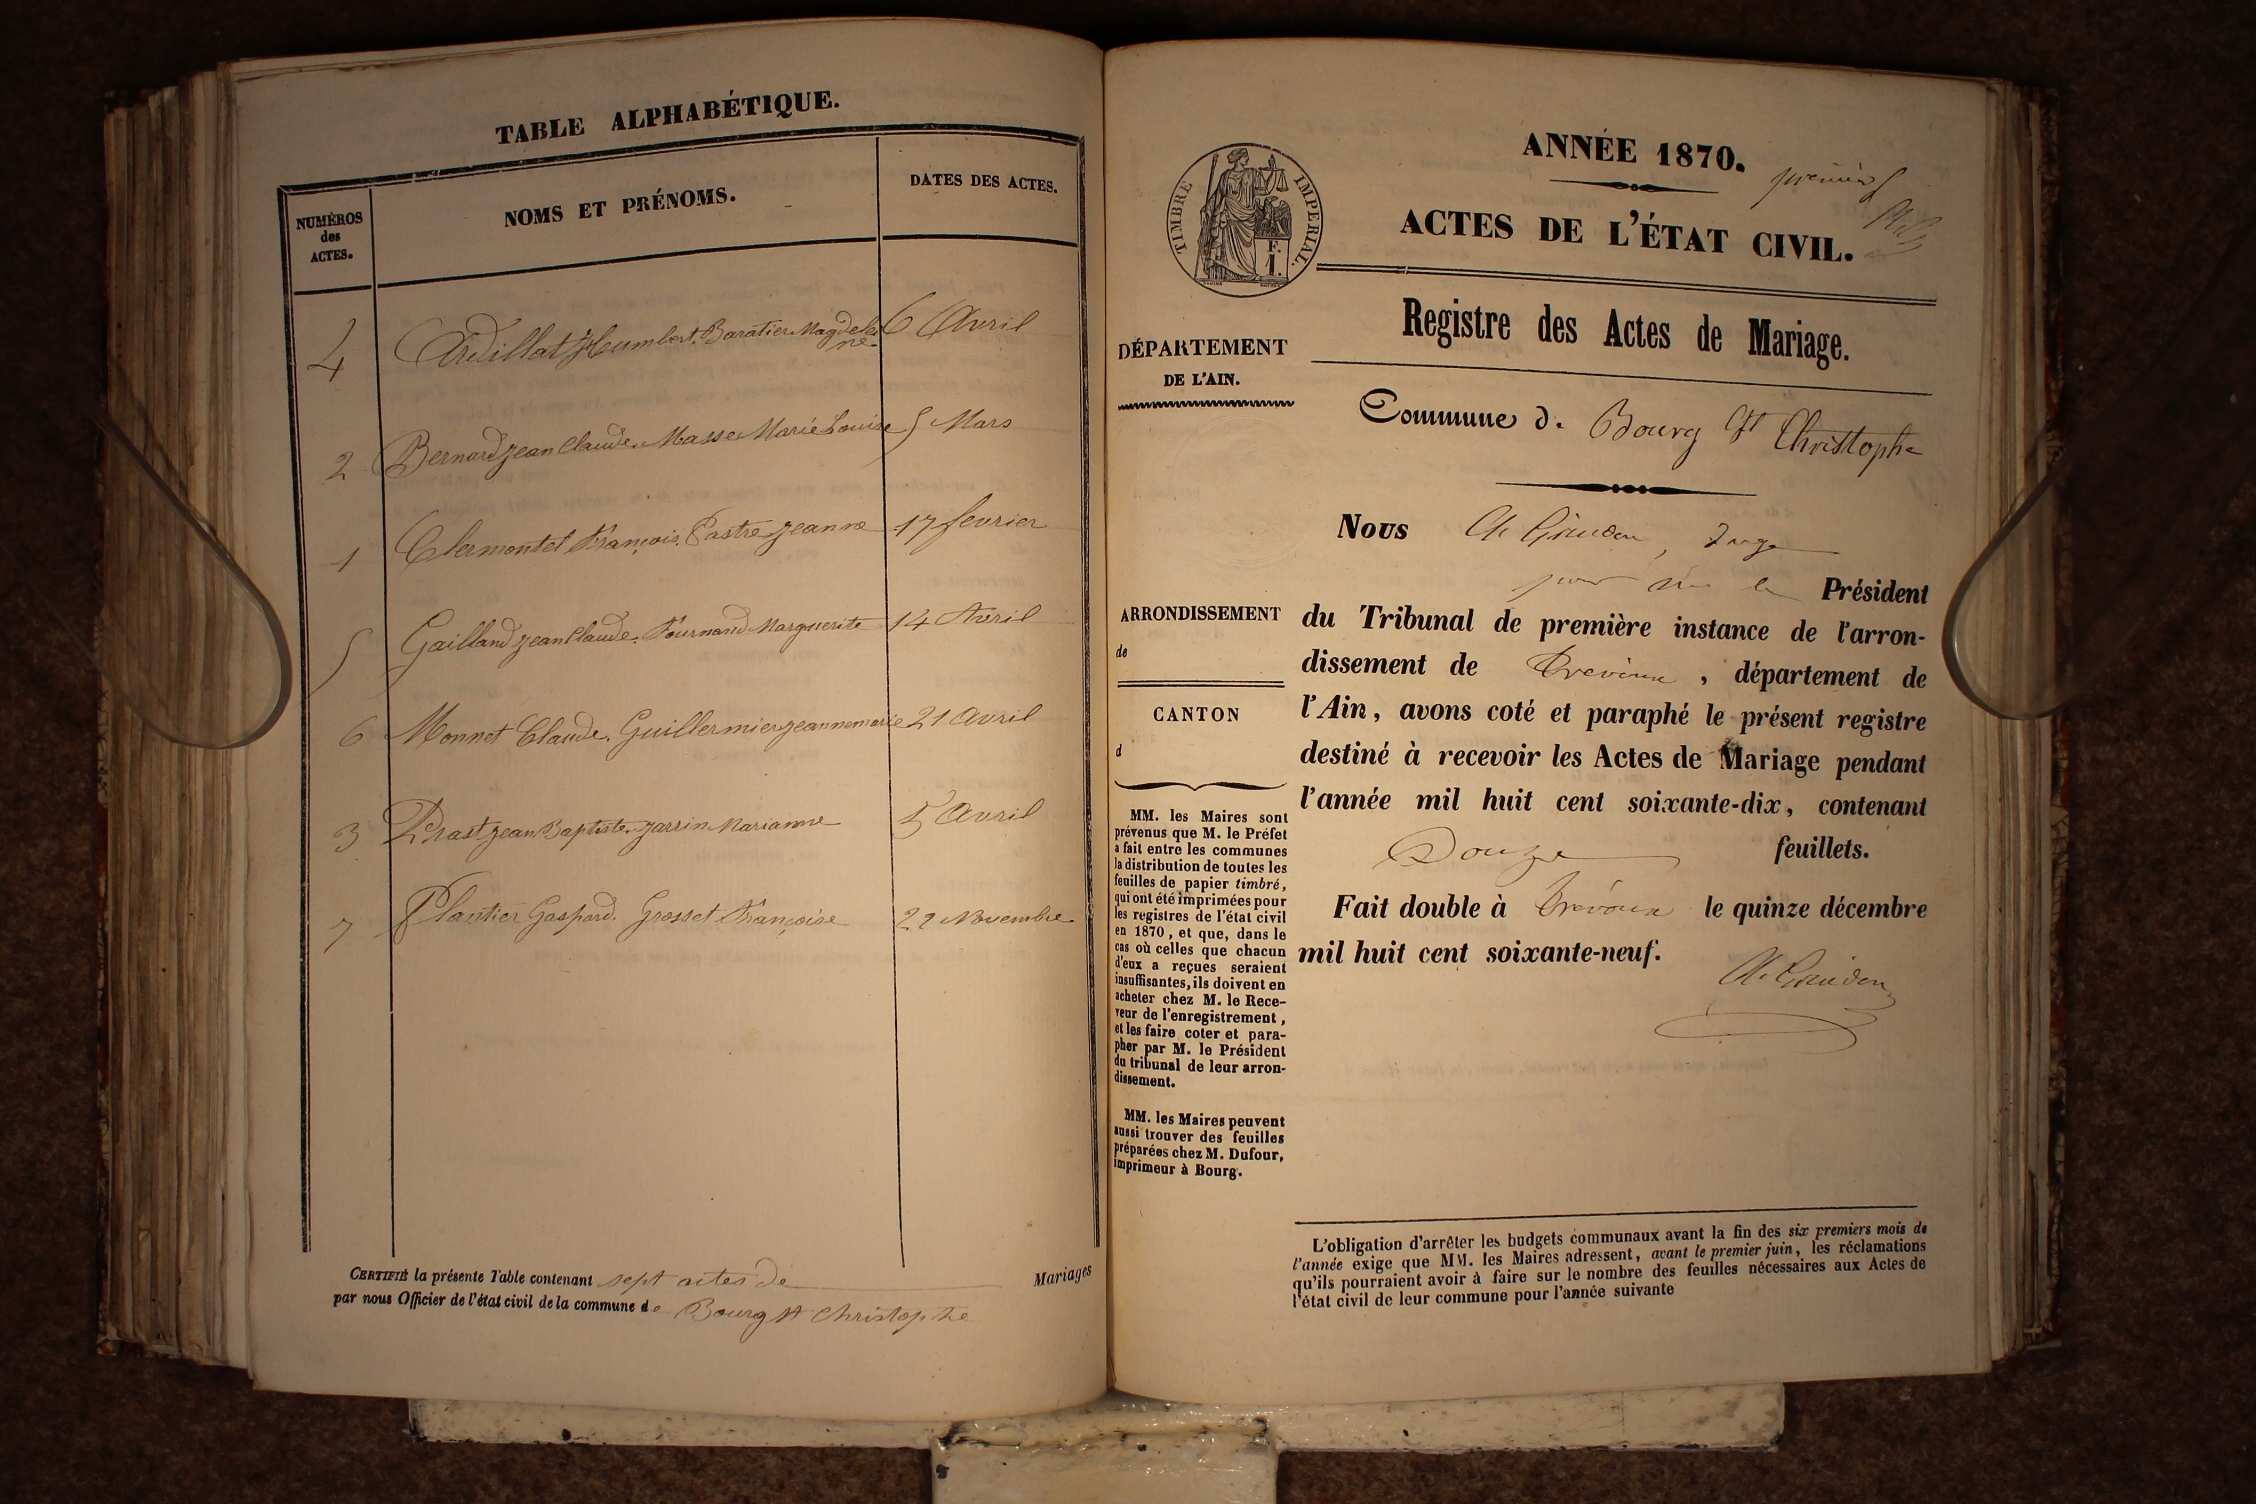 TABLE ALPHABÉTIQUE.
NUMÉROS des ACTES.
NOMS ET PRÉNOMS.
DATES DES ACTES.
4 Ardillat Humbert. Baratier Magdeleine 6 Avril
2 Bernard Jean Claude. Masse Marie Louise 5 Mars
1 Clermontet François. Pastre Jeanne 17 fevrier
5 Gailland Jean Claude. Fournand Marguerite 14 Avril
6 Monnet Claude. Guillermier Jeanne marie 21 Avril
3 Prast Jean Baptiste. Jarrin Marianne 5 Avril
7 Plantier Gaspard. Grosset Françoise 22 Novembre
CERTIFIÉ la présente Table contenant sept actes de Mariages
par nous Officier de l'état civil de la commune de Bourg St Christophe
ANNÉE 1870.
premier
TIMBRE IMPERIAL.
F.
1.
ACTES DE L'ÉTAT CIVIL.
Registre des Actes de Mariage.
DÉPARTEMENT
DE L'AIN.
Commune d. Bourg St Christophe
Nous Juge
Président
ARRONDISSEMENT
de
du Tribunal de première instance de l'arron-
dissement de Trévoux, département de
CANTON
d
l'Ain, avons coté et paraphé le présent registre
destiné à recevoir les Actes de Mariage pendant
l'année mil huit cent soixante-dix, contenant
Douze feuillets.
Fait double à Trévoux le quinze décembre
mil huit cent soixante-neuf.
MM. les Maires sont
prévenus que M. le Préfet
a fait entre les communes
la distribution de toutes les
feuilles de papier timbré,
qui ont été imprimées pour
les registres de l'état civil
en 1870, et que, dans le
cas où celles que chacun
d'eux a reçues seraient
insuffisantes, ils doivent en
acheter chez M. le Rece-
veur de l'enregistrement,
et les faire coter et para-
pher par M. le Président
du tribunal de leur arron-
dissement.
MM. les Maires peuvent
aussi trouver des feuilles
préparées chez M. Dufour,
imprimeur à Bourg.
L'obligation d'arrêter les budgets communaux avant la fin des six premiers mois de
l'année exige que MM. les Maires adressent, avant le premier juin, les réclamations
qu'ils pourraient avoir à faire sur le nombre des feuilles nécessaires aux Actes de
l'état civil de leur commune pour l'année suivante